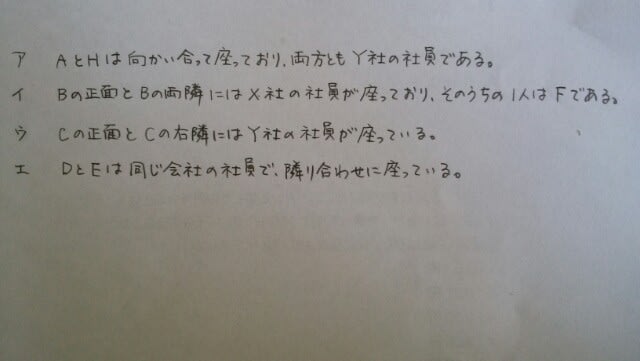 ア AとHは向かい合って座っており、両方ともY社の社員である。
イ Bの正面とBの両隣にはX社の社員が座っており、そのうちの1人はFである。
ウ Cの正面とCの右隣にはY社の社員が座っている。
エ DとEは同じ会社の社員で、隣り合わせに座っている。